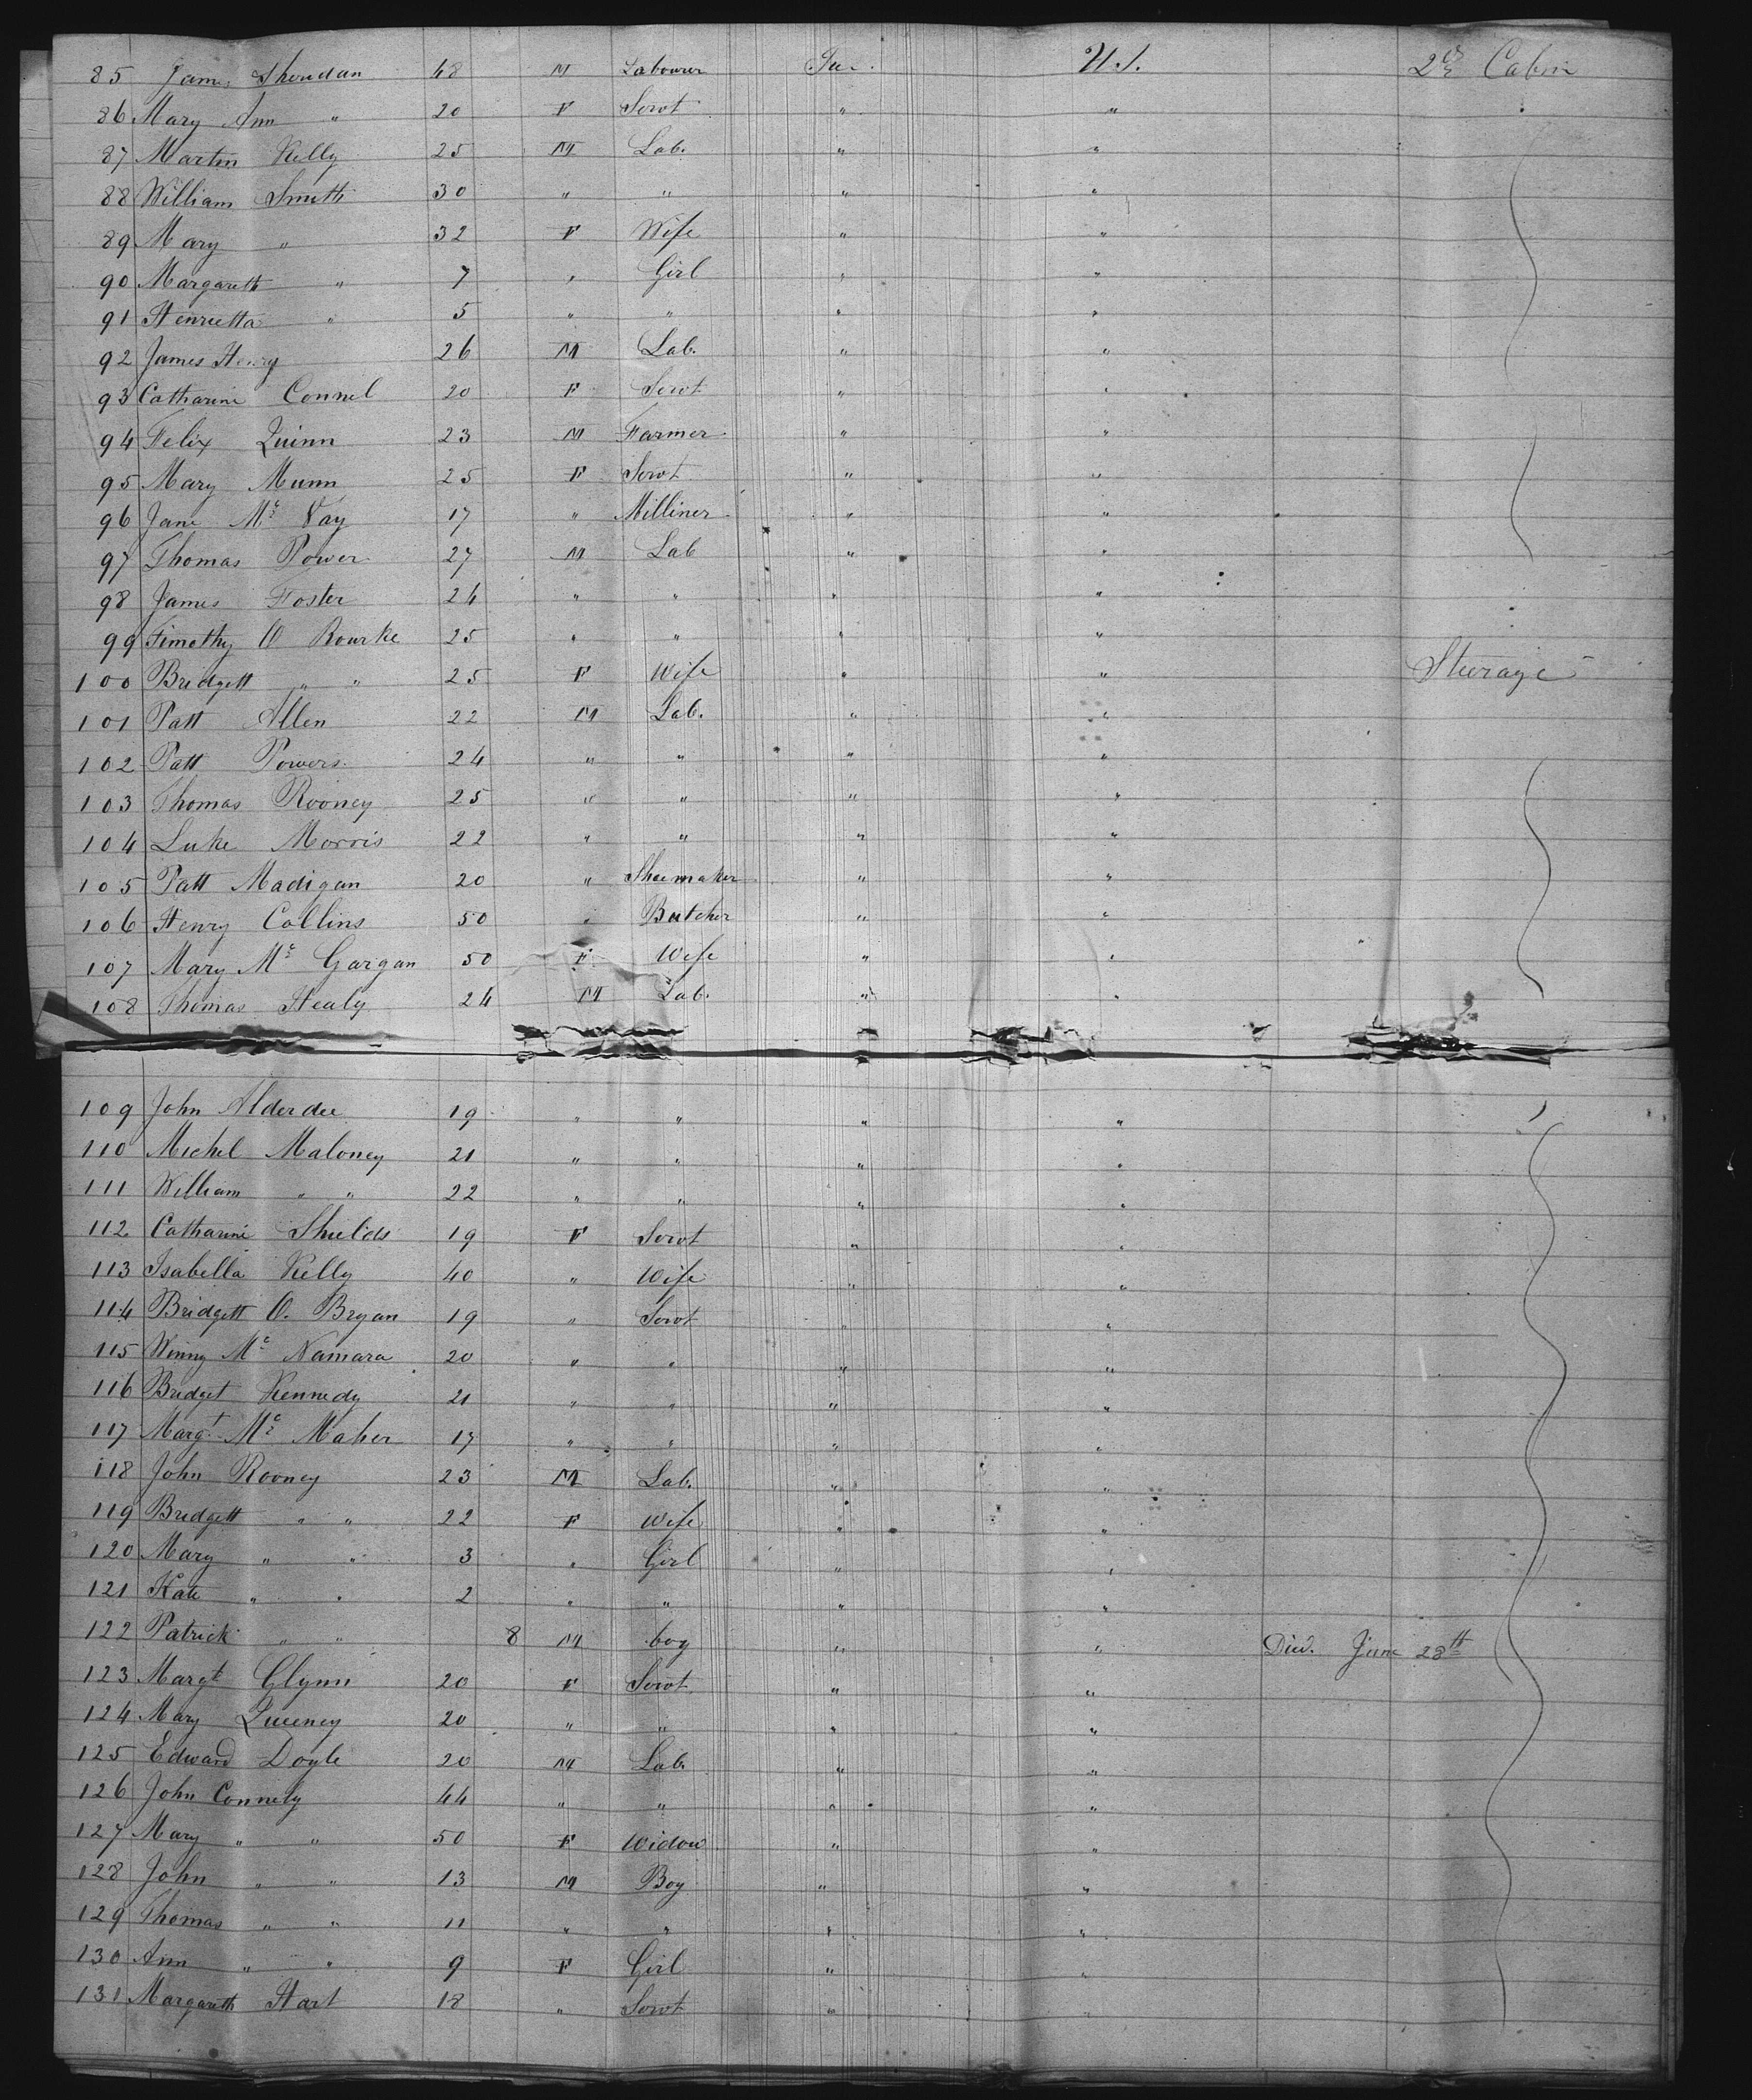 85 James Sheridan 48 M Labourer Ire. U.S. 2d Cabin
86 Mary Ann " 20 F Servt " "
87 Martin Kelly 25 M Lab. " "
88 William Smith 30 " " " "
89 Mary " 32 F Wife " "
90 Margareth " 7 " Girl " "
91 Henrietta " 5 " " " "
92 James Henry 26 M Lab. " "
93 Catharine Connel 20 F Servt " "
94 Felix Quinn 23 M Farmer " "
95 Mary Munn 25 F Servt " "
96 Jane Mc Vay 17 " Milliner " "
97 Thomas Power 27 M Lab " "
98 James Foster 24 " " " "
99 Timothy O Rourke 25 " " " "
100 Bridgett " " 25 F Wife " " Steerage
101 Patt Allen 22 M Lab. " "
102 Patt Powers 24 " " " "
103 Thomas Rooney 25 " " " "
104 Luke Morris 22 " " " "
105 Patt Madigan 20 " Shoemaker " "
106 Henry Collins 50 " Butcher " "
107 Mary Mc Gargan 50 F Wife " "
108 Thomas Healy 24 M Lab. " "
109 John Alderdee 19 " " " "
110 Michel Maloney 21 " " " "
111 William " " 22 " " " "
112 Catharine Shields 19 F Servt " "
113 Isabella Kelly 40 " Wife " "
114 Bridgett O. Bryan 19 " Servt " "
115 Winny Mc Namara 20 " " " "
116 Bridget Kennedy 21 " " " "
117 Margt Mc Maher 17 " " " "
118 John Rooney 23 M Lab. " "
119 Bridgett " " 22 F Wife " "
120 Mary " " 3 " Girl " "
121 Kate " " 2 " " " "
122 Patrick " " 8 M boy " " Died. June 28th
123 Margt Glynn 20 F Servt " "
124 Mary Queeney 20 " " " "
125 Edward Doyle 20 M Lab. " "
126 John Connely 44 " " " "
127 Mary " " 50 F Widow " "
128 John " " 13 M Boy " "
129 Thomas " " 11 " " " "
130 Ann " " 9 F Girl " "
131 Margareth Hart 18 " Servt " "